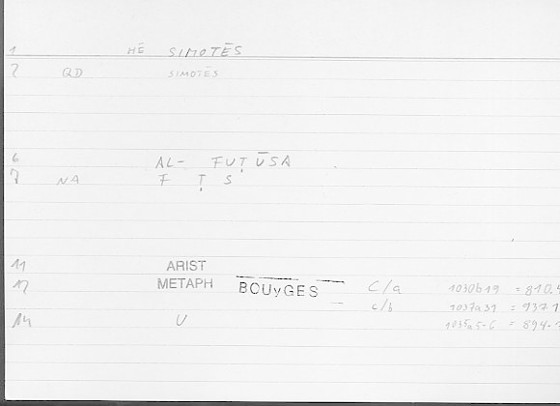 1 HĒ SIMOTĒS
2 QD SIMOTĒS
6 AL- FUṬŪSA
7 NA F Ṭ S
11 ARIST
12 METAPH BOUyGES C/a 1030b19 = 810.4
c/b 1037a31 = 937.1
14 U 1035a5-6 = 894.1